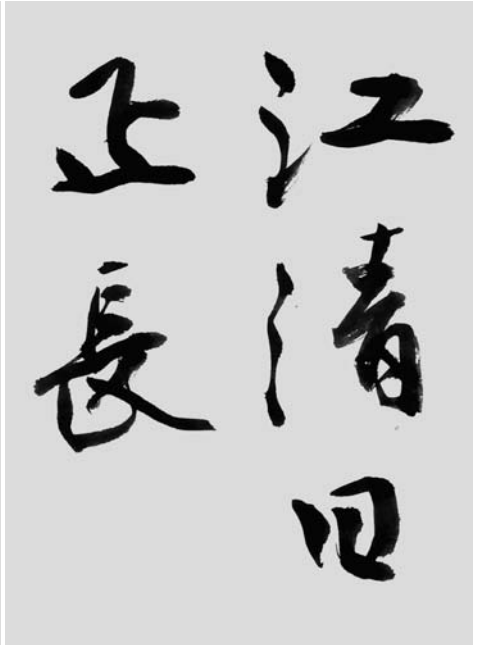 江清日
正長